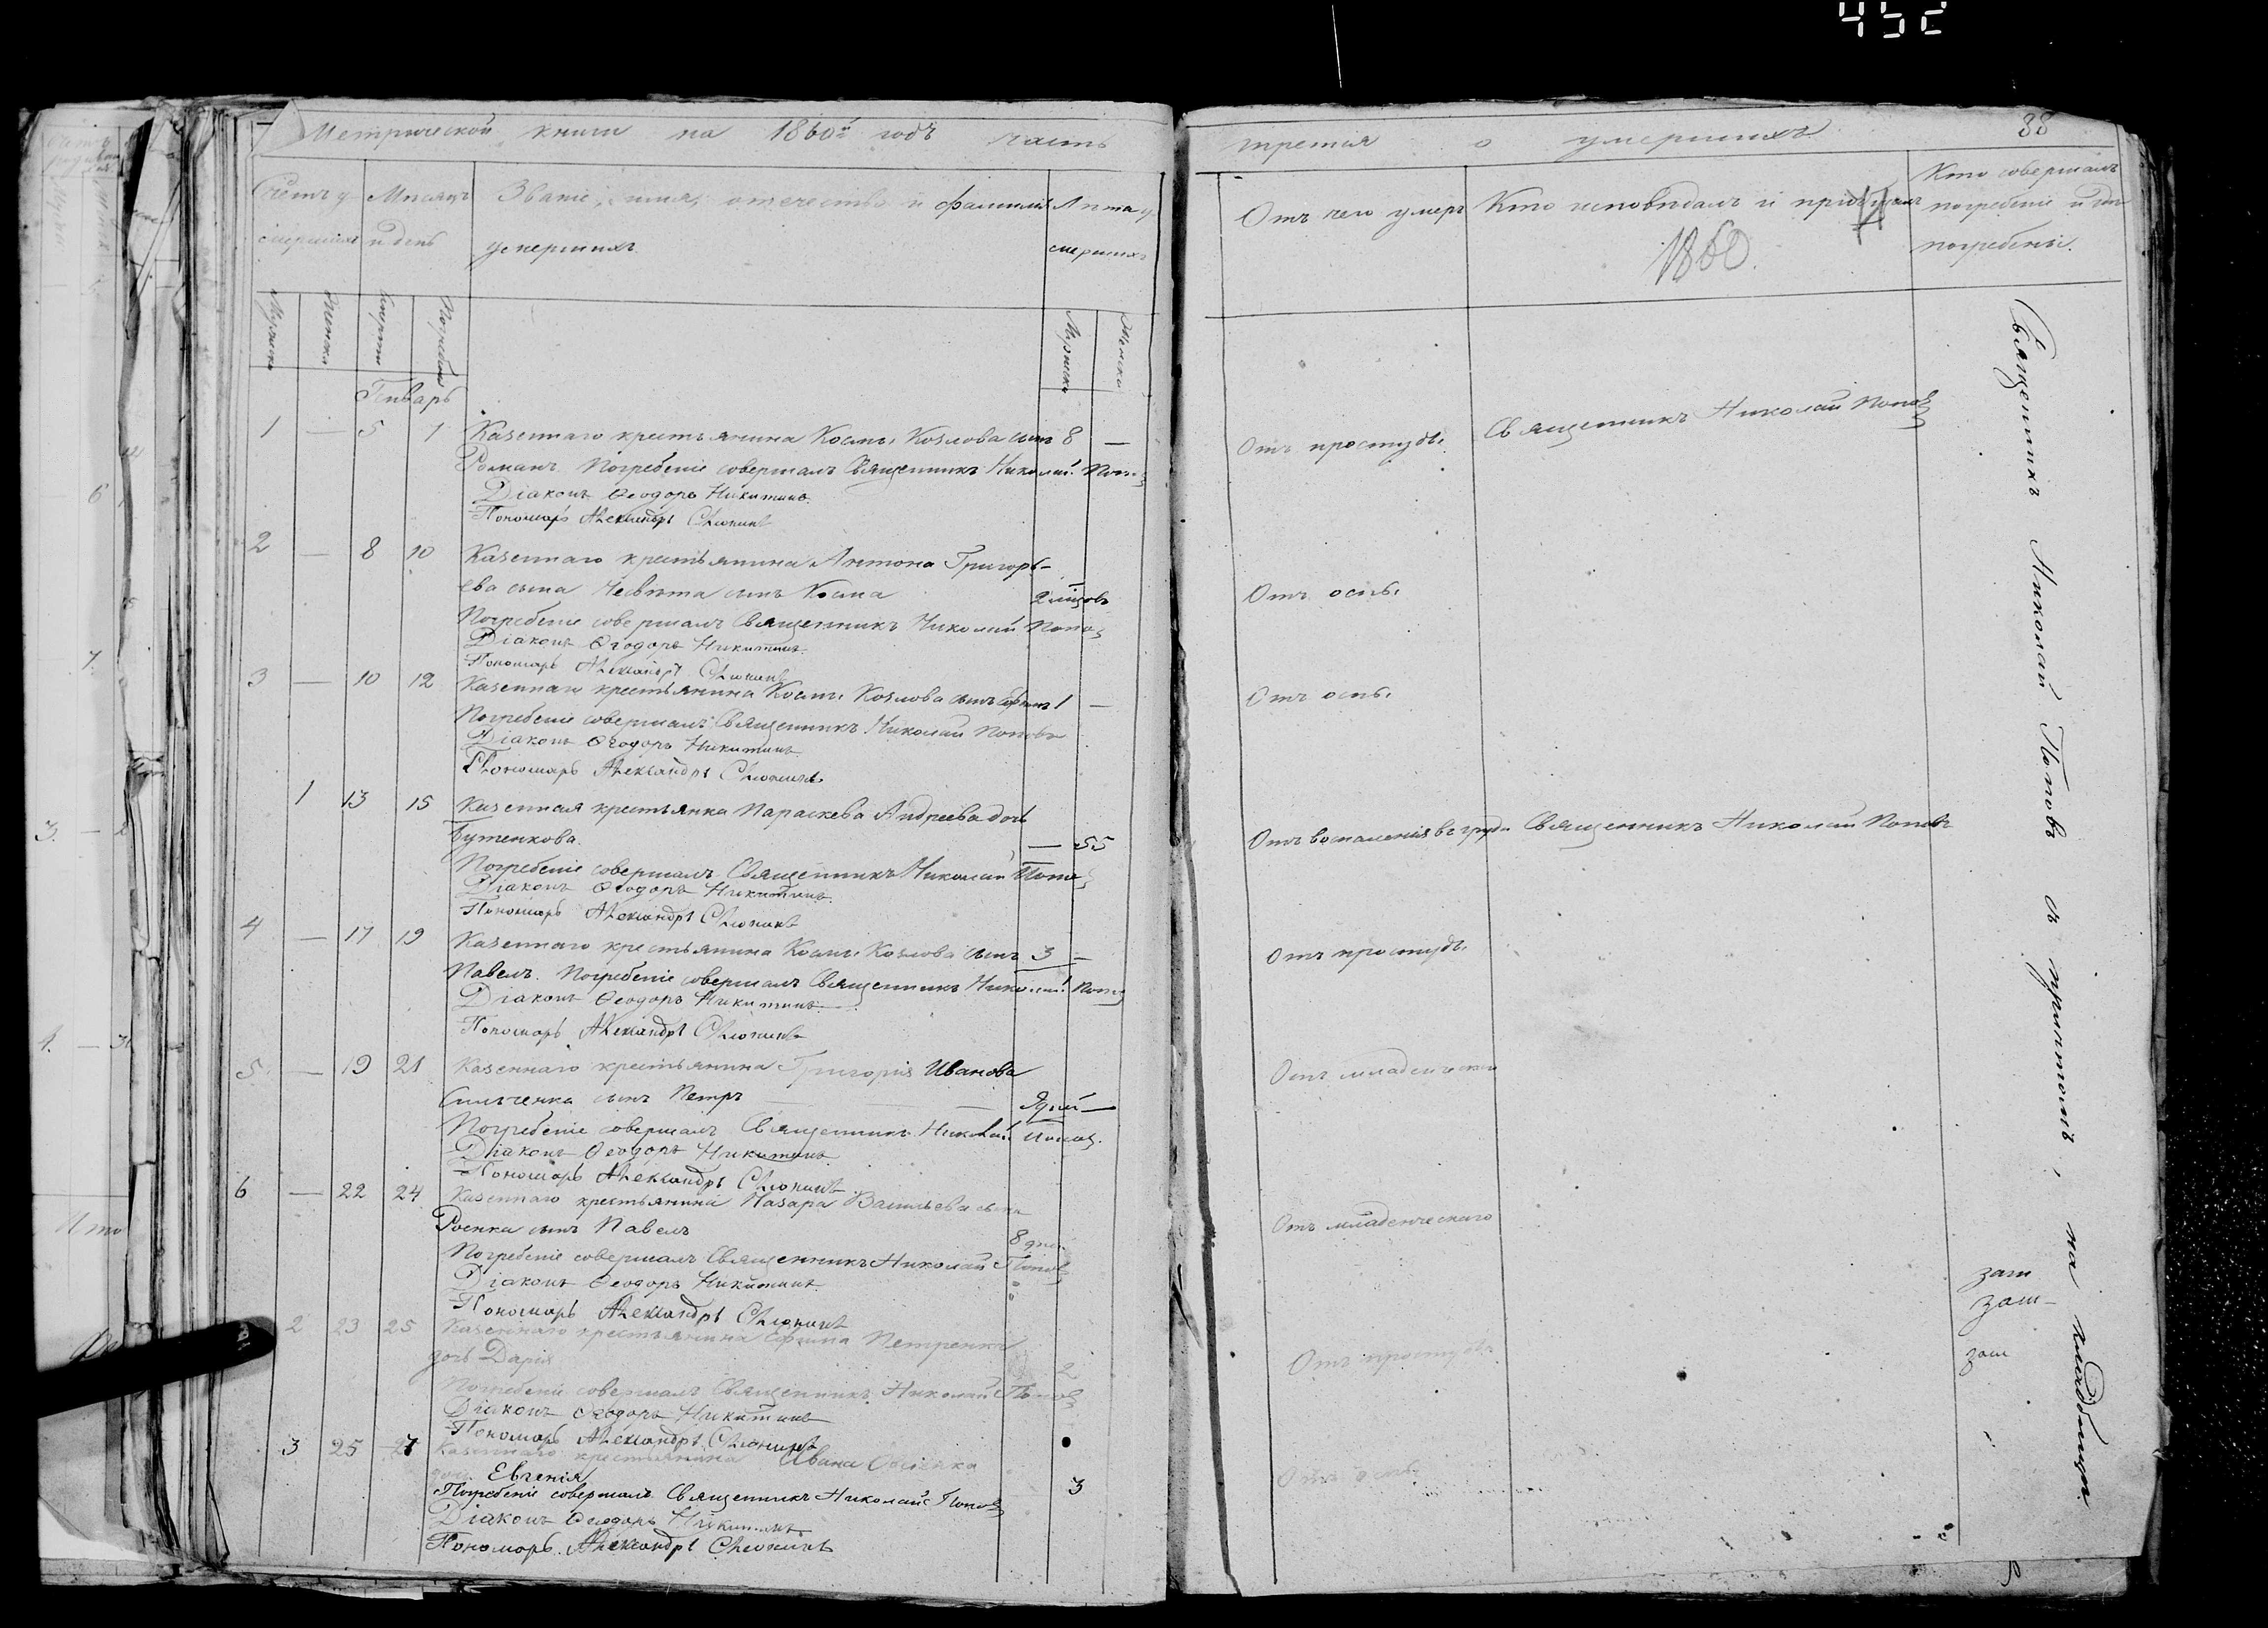 452
Метрической книги на 1860й годъ часть
третия о умершихъ
38
Счетъ у-
мершихъ
Мѣсяцъ
и день
Званіе, имя, отечество и фамилія
умершихъ.
Лѣта у-
мершихъ
Отъ чего умеръ
Кто исповѣдалъ и
1860.
Кто совершалъ
погребеніе и гдѣ
погребены.
Мужеска
Женска
Смерти
Погребенія
Мужеска
Женска
Генварь
1 — 5 1 Казеннаго крестьянина Космы Козлова сынъ 8 —
Романъ. Погребеніе совершалъ Священникъ Николай Поповъ
Діаконъ Ѳеодоръ Никитинъ
Пономарь Александръ
Отъ простуды.
Священникъ Николай Поповъ
2 — 8 10 Казеннаго крестьянина Антона Григорь-
ева сына сынъ Косма 2
Погребеніе совершалъ Священникъ Николай Поповъ
Діаконъ Ѳеодоръ Никитинъ
Пономарь Александръ
Отъ оспы.
3 — 10 12 Казеннаго крестьянина Космы Козлова сынъ 1 —
Погребеніе совершалъ Священникъ Николай Поповъ
Діаконъ Ѳеодоръ Никитинъ
Пономарь Александръ
Отъ оспы.
1 13 15 Казенная крестьянка Параскева Андреева дочь
Бутенкова. — 55
Погребеніе совершалъ Священникъ Николай Поповъ
Діаконъ Ѳеодоръ Никитинъ
Пономарь Александръ
Отъ воспаленія въ груди
Священникъ Николай Поповъ
4 — 17 19 Казеннаго крестьянина Космы Козлова сынъ 3 —
Павелъ. Погребеніе совершалъ Священникъ Николай Поповъ
Діаконъ Ѳеодоръ Никитинъ
Пономарь Александръ
Отъ простуды.
5 — 19 21 Казеннаго крестьянина Григорія Иванова
сынъ Петръ —
Погребеніе совершалъ Священникъ Николай Поповъ.
Діаконъ Ѳеодоръ Никитинъ
Пономарь Александръ
Отъ младенческаго
6 — 22 24 Казеннаго крестьянина Назара Васильева сына
сынъ Павелъ 8 дней
Погребеніе совершалъ Священникъ Николай Поповъ
Діаконъ Ѳеодоръ Никитинъ
Пономарь Александръ
Отъ младенческаго
2 23 25 Казеннаго крестьянина Ефима Петренка
дочь Дарія 2
Погребеніе совершалъ Священникъ Николай Поповъ
Діаконъ Ѳеодоръ Никитинъ
Пономарь Александръ
Отъ простуды
3 25 27 Казеннаго крестьянина Ивана
дочь Евгенія 3
Погребеніе совершалъ Священникъ Николай Поповъ
Діаконъ Ѳеодоръ Никитинъ
Пономарь Александръ
Отъ оспы
Священникъ Николай Поповъ съ причтомъ, на кладбищѣ